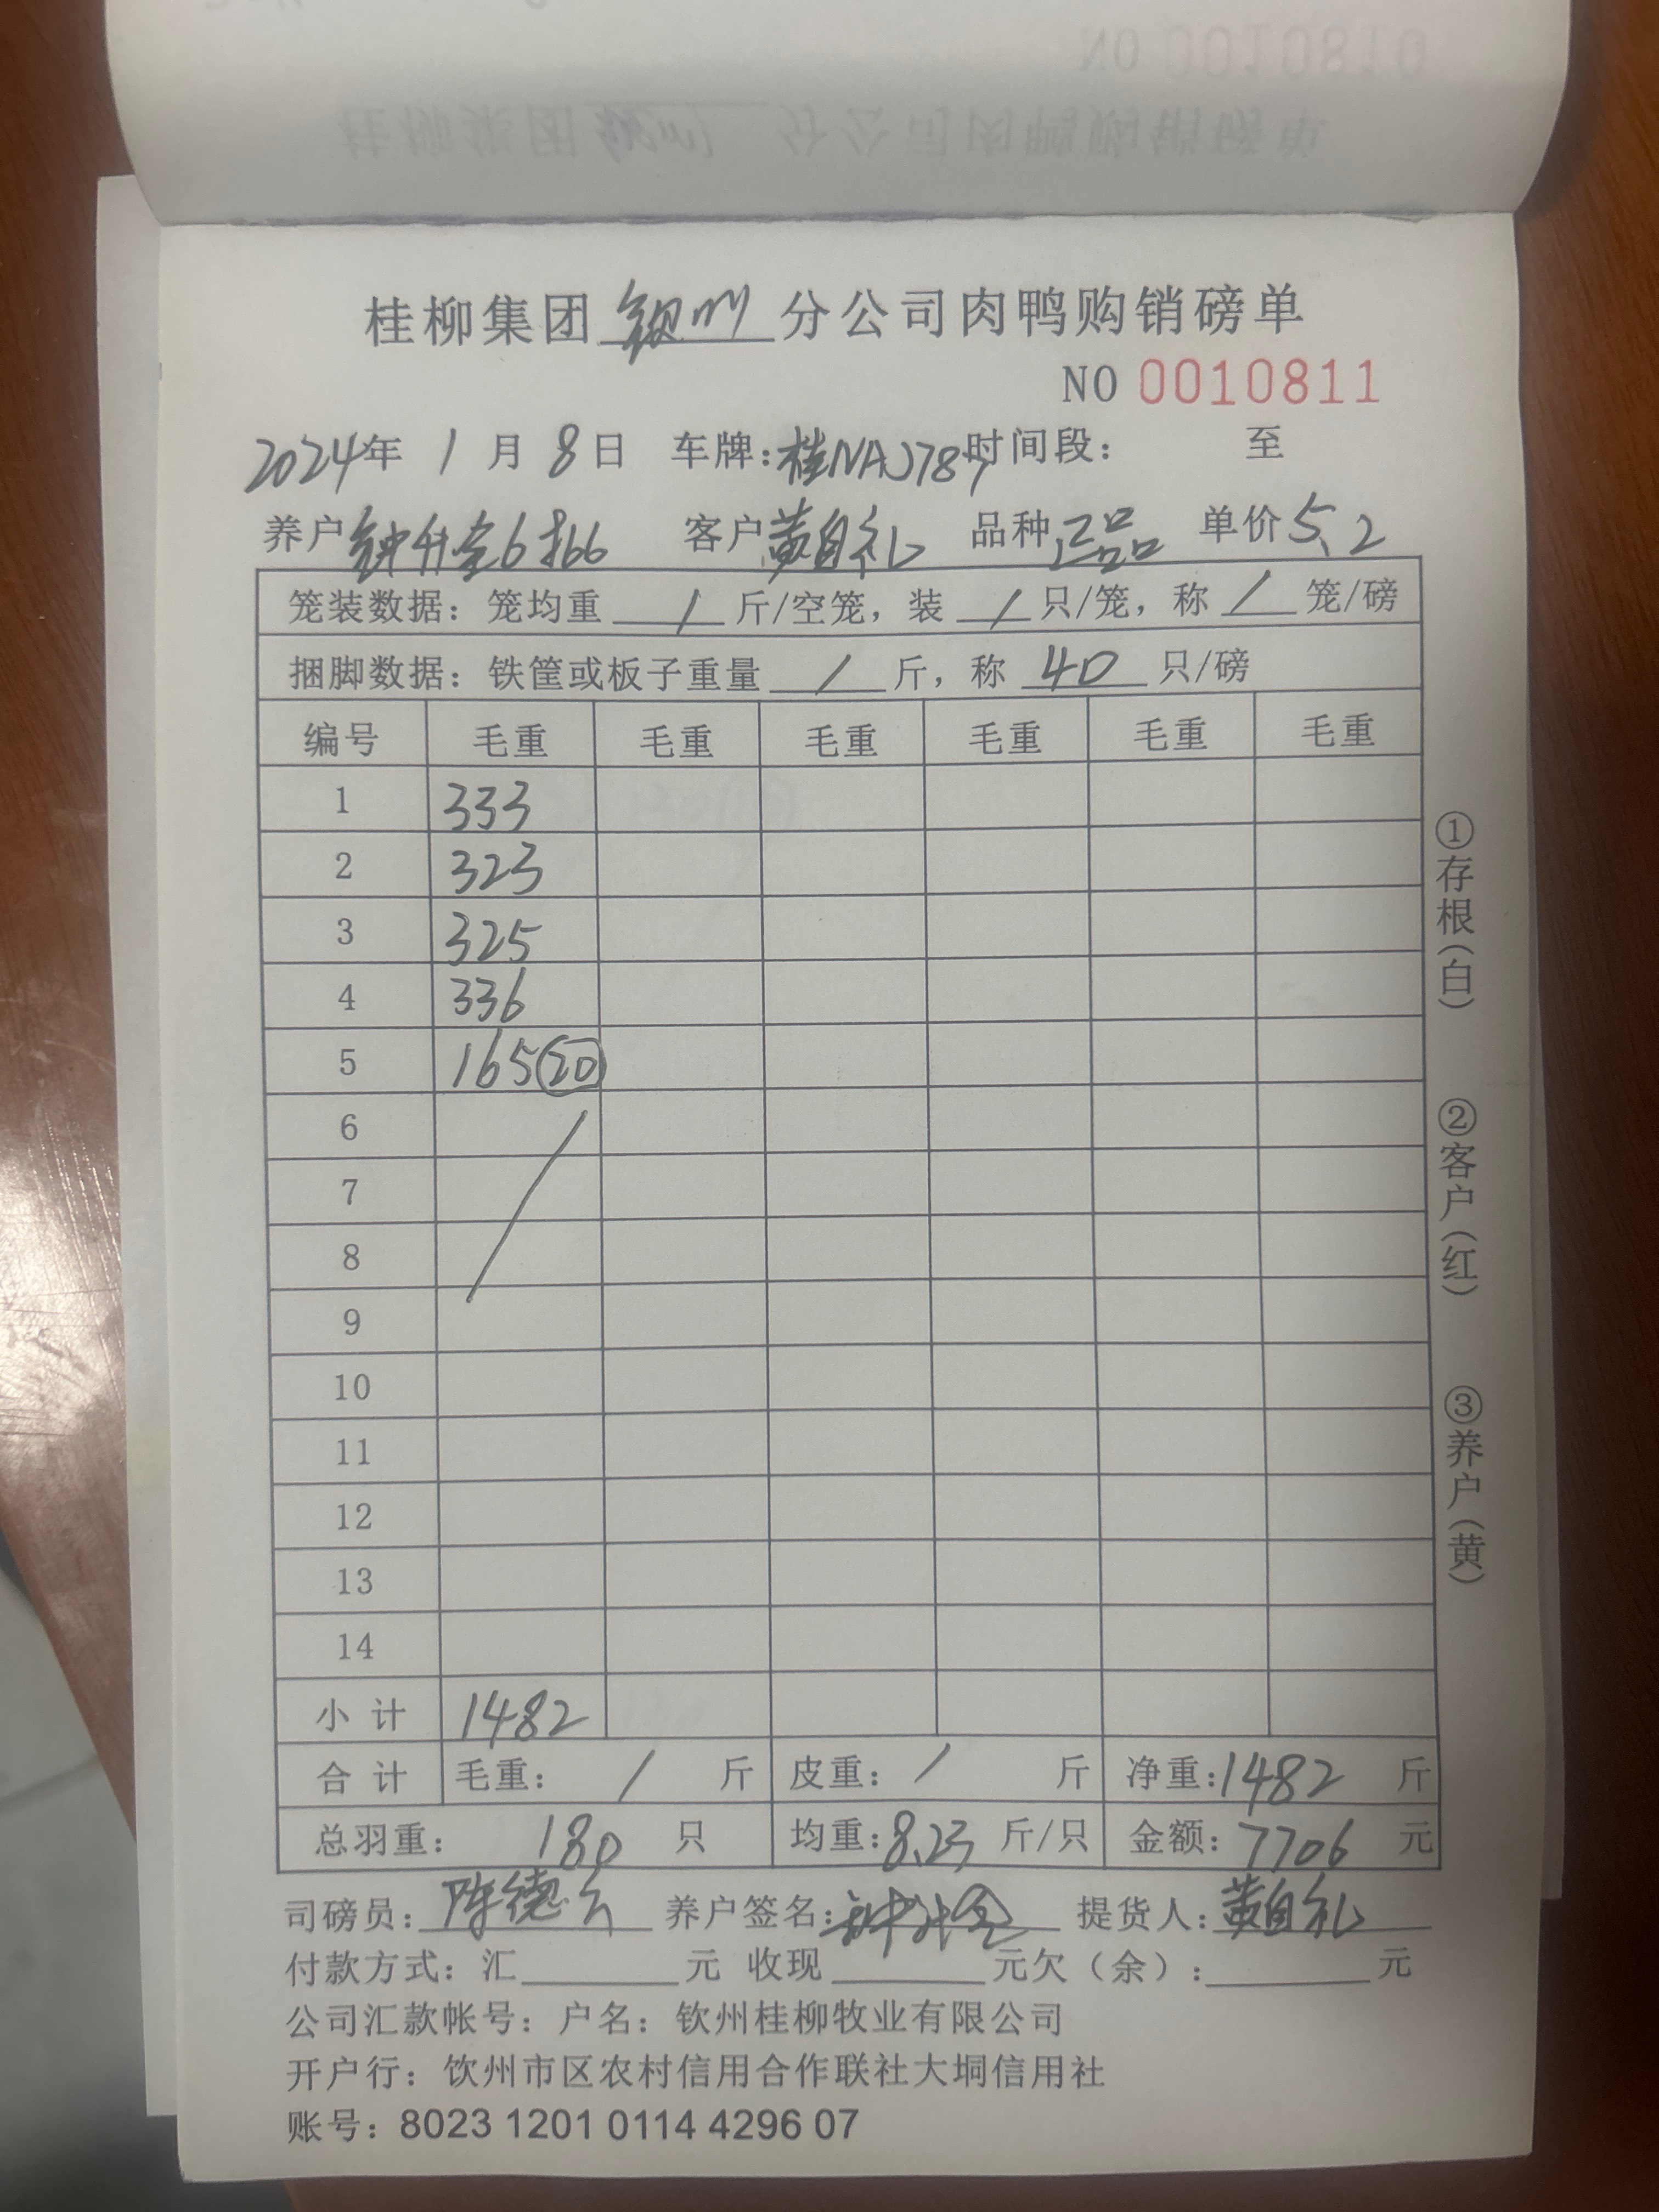 桂柳集团钦州分公司肉鸭购销磅单
NO 0010811
2024年 1月 8日 车牌:桂NAJ787时间段: 至
养户 钟升金6批 客户黄自礼 品种正品 单价5.2
笼装数据: 笼均重 / 斤/空笼, 装 / 只/笼, 称 / 笼/磅
捆脚数据: 铁筐或板子重量 / 斤, 称 40 只/磅
编号 毛重 毛重 毛重 毛重 毛重 毛重
1 333
2 323
3 325
4 336
5 165 20
6
7
8
9
10
11
12
13
14
小计 1482
合计 毛重: / 斤 皮重: / 斤 净重:1482 斤
总羽重: 180 只 均重:8.23 斤/只 金额:7706 元
司磅员: 陈德 养户签名: 钟升金 提货人:黄自礼
付款方式: 汇 元 收现 元欠(余): 元
公司汇款帐号: 户名: 钦州桂柳牧业有限公司
开户行: 钦州市区农村信用合作联社大垌信用社
账号: 8023 1201 0114 4296 07
①存根(白)
②客户(红)
③养户(黄)